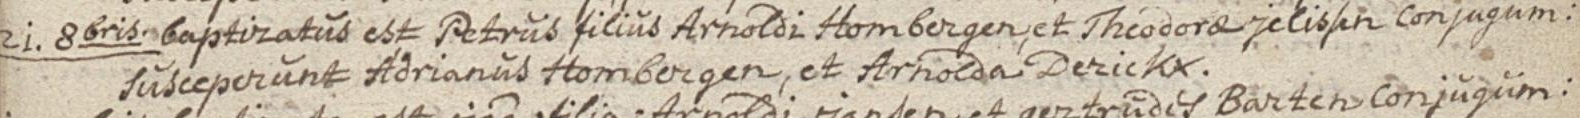 21. 8bris. baptizatus est Petrus filius Arnoldi Hombergen, et Theodoræ jelissen Conjugum:
susceperunt Adrianus Hombergen, et Arnolda Derickx.
est filia Arnoldi jansen et gertrudis Barten Conjugum: